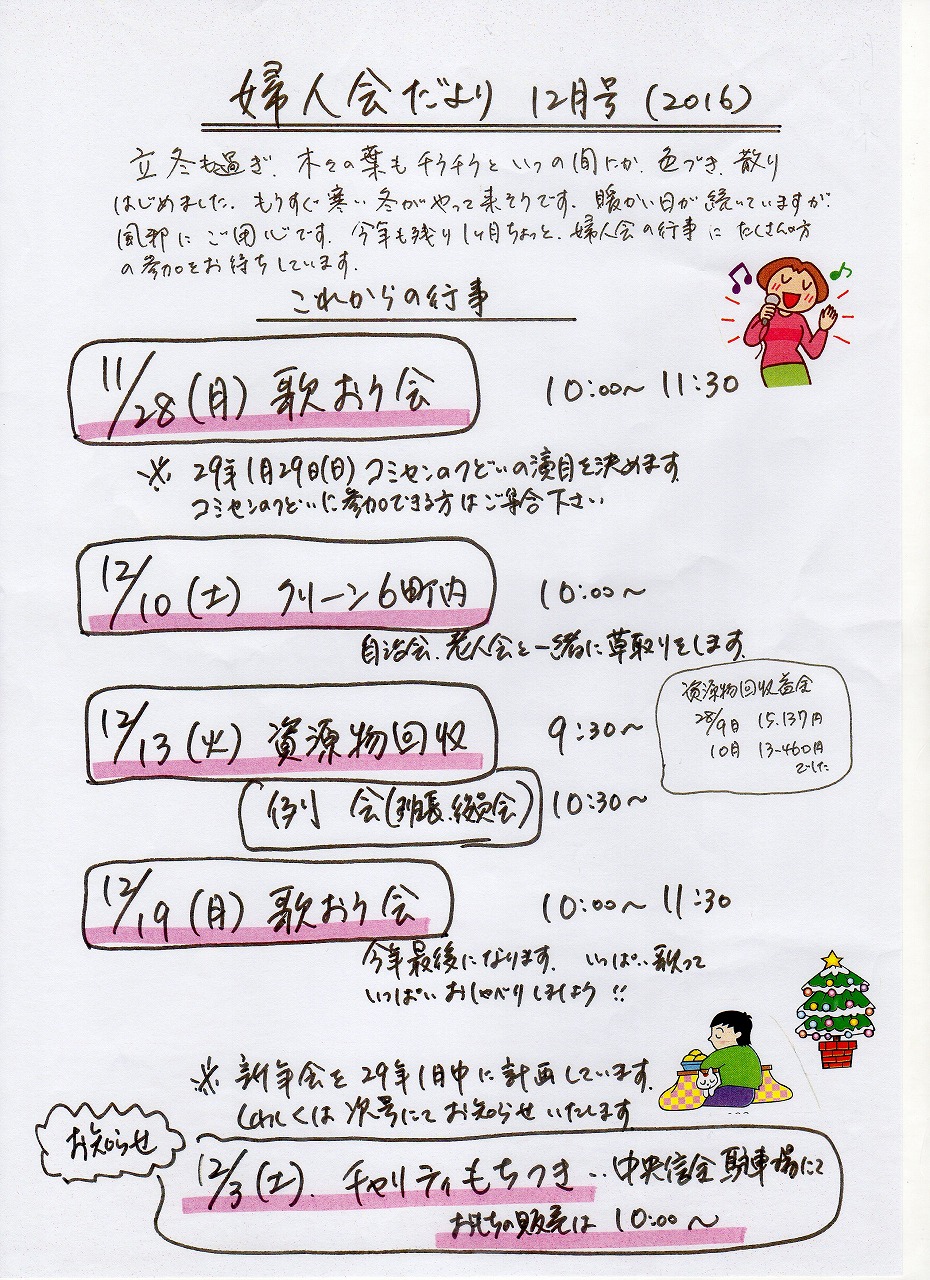 婦人会だより 12月号(2016)
立冬も過ぎ、木々の葉もチラチラといつの間にか、色づき、散り
はじめました。もうすぐ寒い冬がやって来そうです。暖かい日が続いていますが
風邪にご用心です。今年も残り1ヶ月ちょっと、婦人会の行事にたくさんの方
の参加をお待ちしています。
これからの行事
11/28(月)歌おう会 10:00〜11:30
※ 29年1月29日(日)コミセンのつどいの演目を決めます。
コミセンのつどいに参加できる方はご集合下さい
12/10(土) クリーン6町内 10:00〜
自治会、老人会と一緒に草取りをします。
12/13(火)資源物回収 9:30〜
資源物回収益金
28/9月 15.137円
10月 13-460円
でした
例 会(班長、役員会) 10:30〜
12/19(月)歌おう会 10:00〜11:30
今年最後になります。いっぱい歌って
いっぱいおしゃべりしましょう!!
※ 新年会を29年1月中に計画しています。
くわしくは次号にてお知らせいたします
お知らせ
12/3(土)、チャリティもちつき‥中央信金駐車場にて
おもちの販売は 10:00〜